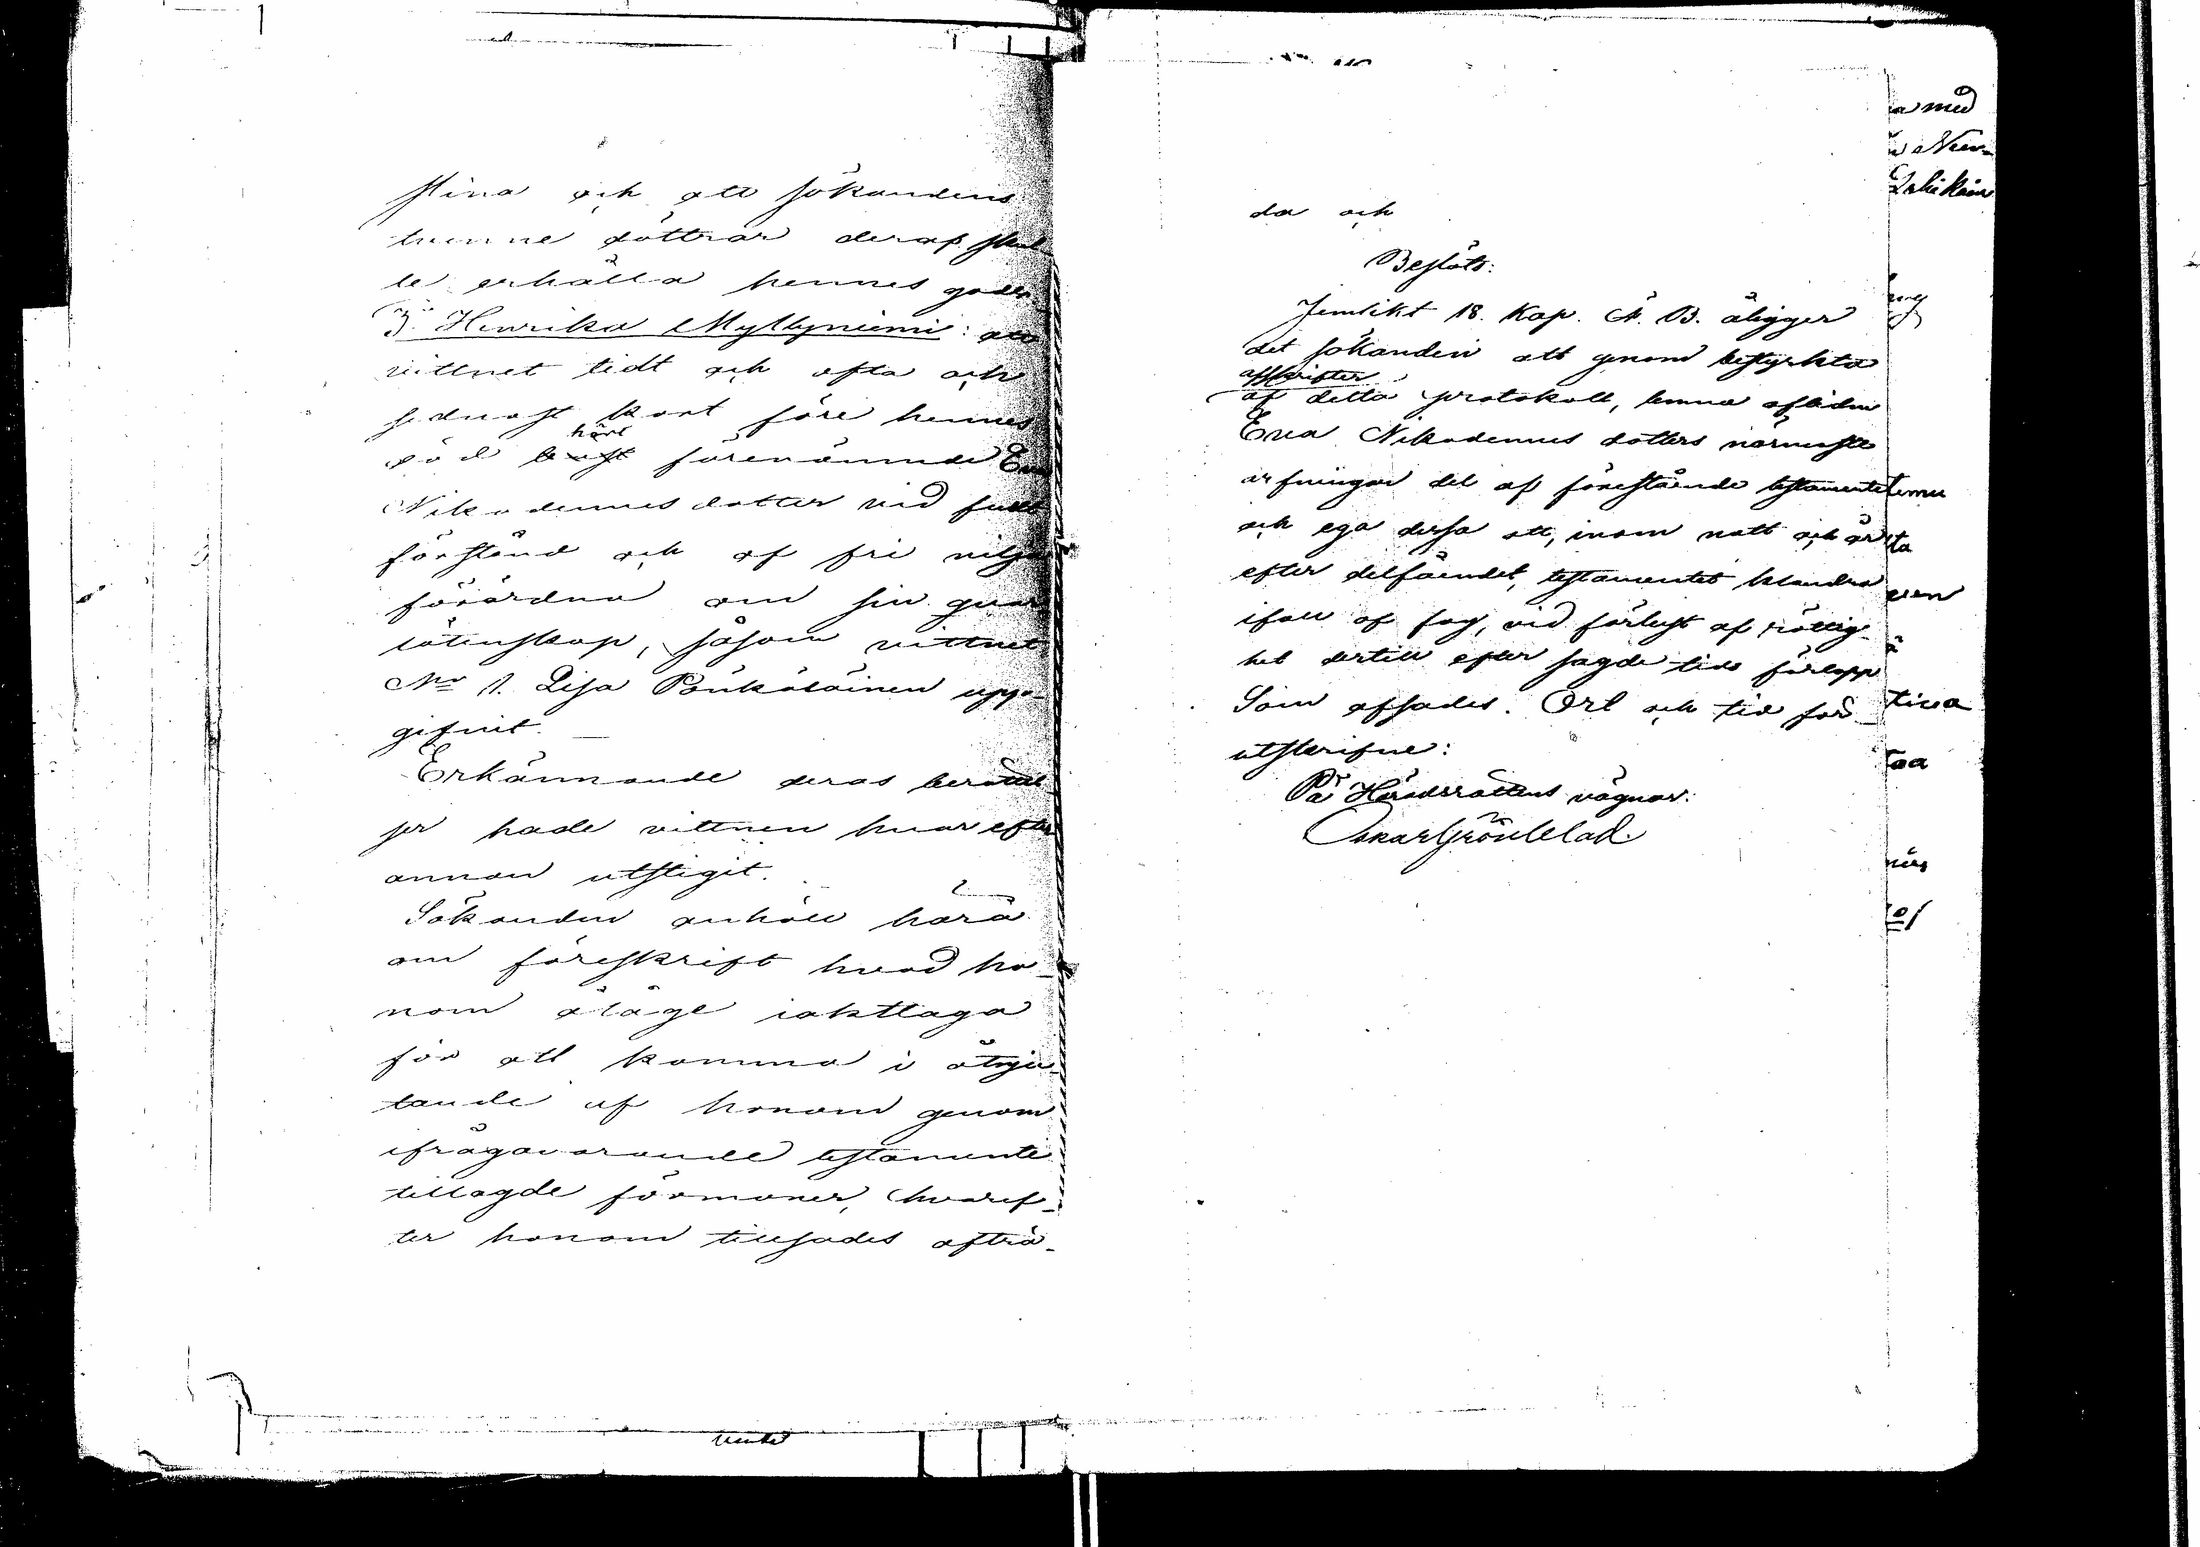 stina och att sökandens
tvenne döttrar deraf skul
le erhålla hennes goda.
3. Henrika Myllyniemi: att
vittnet tidt och ofta och
sednast kort före hennes
död hört förenämnda Eva
Nikodemusdotter vid fullt
förstånd och af fri vilja
förordna om sin qvar
låtenskap, såsom vittnet
No 1. Lisa Pönkäläinen upp-
gifvit.
Erkännande deras berättel
ser hade vittnen hvar efter
annan utstigit.
Sökanden anhöll härå
om föreskrift hvad ho-
nom ålåge iakttaga
för att komma i åtnju-
tande af honom genom
ifrågavarande testamente
tillagde förmoner, hvaref-
ter honom tillsades afträ-
da och
Beslöts:
Jemlikt 18. Kap. Ä. B. åligger
det sökanden att genom bestyrkta
afskrifter
af detta protokoll, lemna aflidna
Eva Nikodemus dotters närmaste
arfvingar del af förestående testamente
och ega dessa att, inom natt och år
efter delfåendet, testamentet klandra
ifall af fog, vid förlust af rättig-
het dertill efter sagde tids förlopp
Som afsades. Ort och tidför-
utskrifne:
På Häradsrättens vägnar:
Oskar Grönblad.
a med
tina